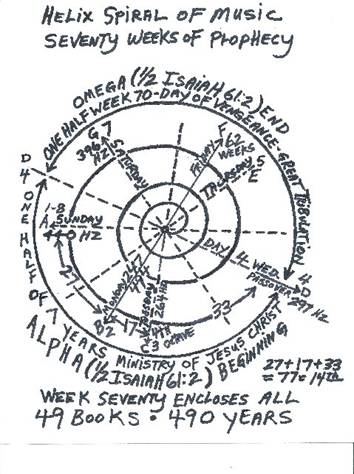 HELIX SPIRAL OF MUSIC
SEVENTY WEEKS OF PROPHECY
OMEGA (1/2 ISAIAH 61:2) END
ONE HALF WEEK 70-DAY OF VENGEANCE-GREAT TRIBULATION
G 7
396 HZ
SATURDAY
F
62 WEEKS
FRIDAY
THURSDAY 5
E
D
4
ONE HALF OF 7 YEARS MINISTRY OF JESUS CHRIST
1-8
A SUNDAY
440 HZ
DAY 4 WED.
PASSOVER
4
D
297 HZ
27
MONDAY
B2
17
C3 OCTAVE
33
ALPHA (1/2 ISAIAH 61:2) BEGINNING
27+17+33
=77=14TH
WEEK SEVENTY ENCLOSES ALL
49 BOOKS • 490 YEARS